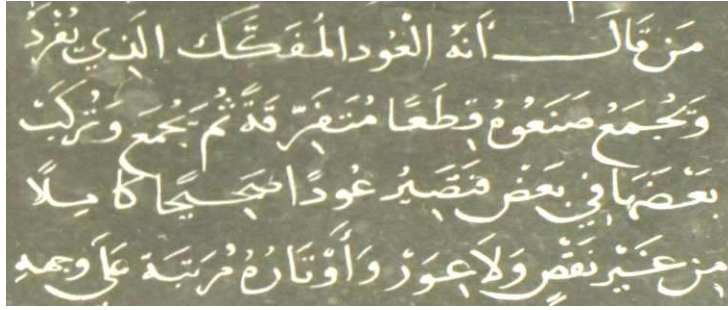 مَن قَالَ أَنهُ العُود المُفَكَّك الَّذِي يُفْرَدُ
وَيُجمَعُ صَنَعُوهُ قِطَعًا مُتَفَرّقَةً ثُمَّ يُجمَعَ وَتُركَّبَ
بَعْضَهَا فِي بَعْض فتَصِيرُ عُودًا صَحِيحًا كامِلًا
مِن غَيْر نَقصٍ وَلَا عِوَز وَأَوْتَارُهُ مُرَتبَة عَلَى وجههِ